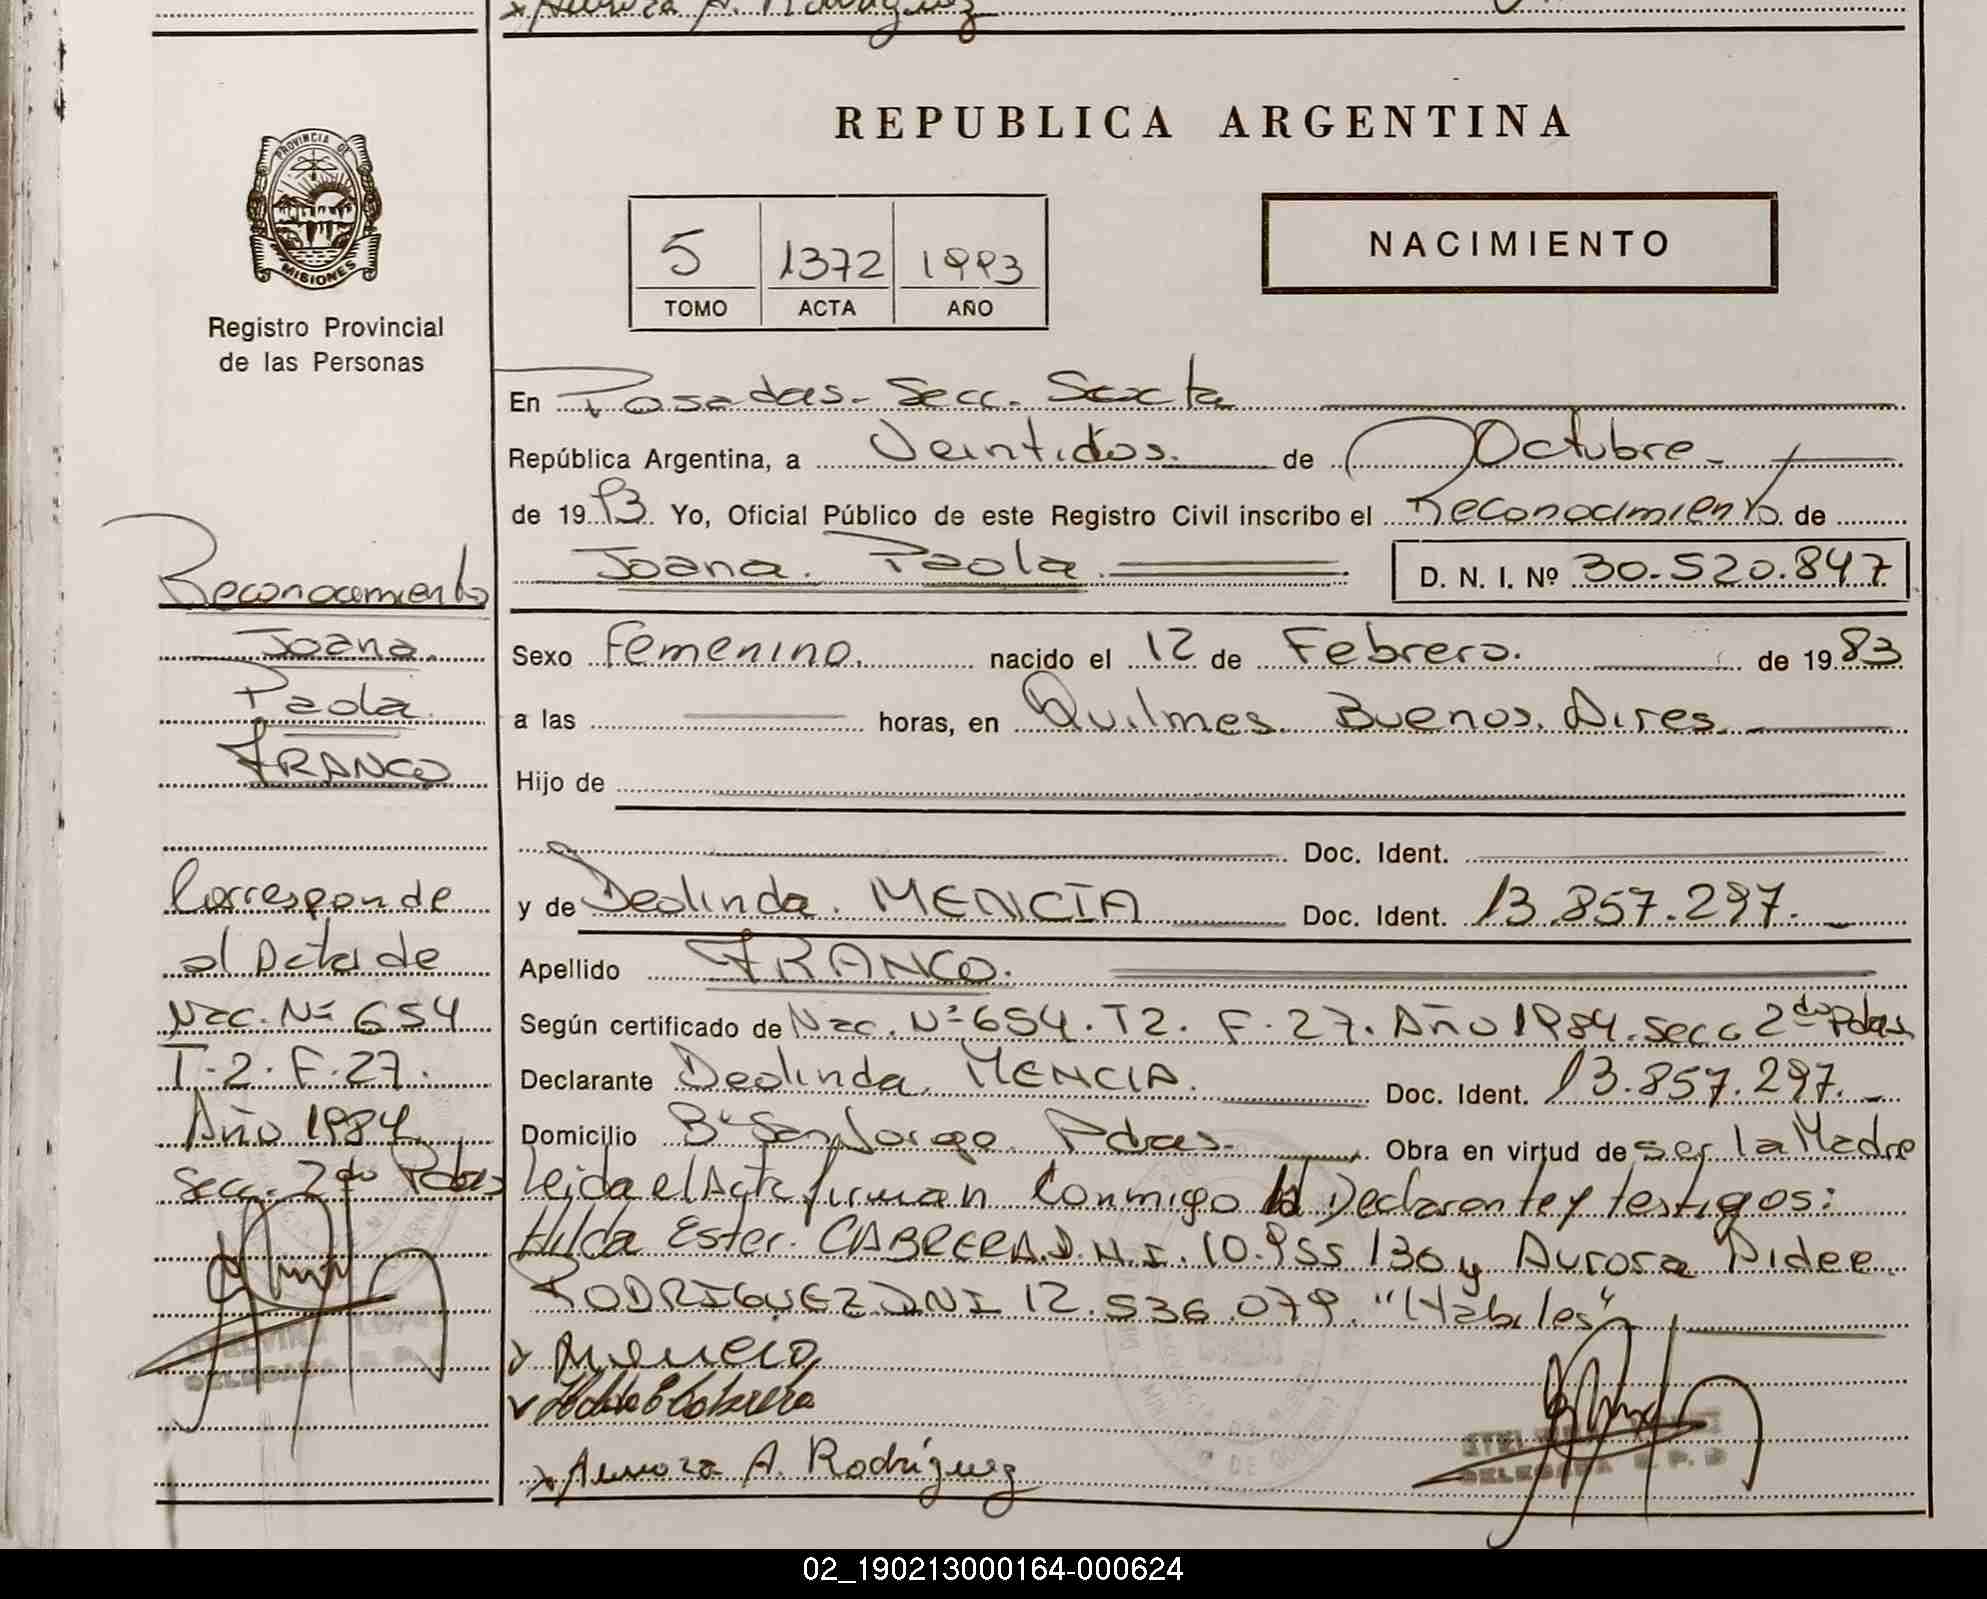 Aurora A. Rodriguez
REPUBLICA ARGENTINA
PROVINCIA DE
MISIONES
Registro Provincial
de las Personas
5 1372 1993
TOMO ACTA AÑO
NACIMIENTO
En Posadas - Secc. Sexta
República Argentina, a Veintidos. de Octubre -
de 1993 Yo, Oficial Público de este Registro Civil inscribo el Reconocimiento de
Joana. Paola. D. N. I. Nº 30.520.847
Sexo Femenino. nacido el 12 de Febrero. de 1983
a las horas, en Quilmes. Buenos. Aires.
Hijo de
Doc. Ident.
y de Deolinda. MENCIA Doc. Ident. 13.857.297.-
Apellido FRANCO.
Según certificado de Nac. Nº 654. T2. F. 27. Año 1984. Secc 2da Pdas
Declarante Deolinda. MENCIA. Doc. Ident. 13.857.297.-
Domicilio Bº San Jorge. Pdas. Obra en virtud de ser la Madre
Leida el Acta firman Conmigo la Declarante y testigos:
Hilda Ester. CABRERA. D.N.I. 10.955 136 y Aurora Aidee
RODRIGUEZ DNI 12.536.079. "Habiles"
Hilda E Cabrera
Aurora A. Rodríguez
Reconocimiento
Joana.
Paola.
FRANCO
Corresponde
al Acta de
Nac. Nº 654
T. 2. F. 27.
Año 1984
Secc. 2da Pdas
DELEGADA R. P. P
02_190213000164-000624